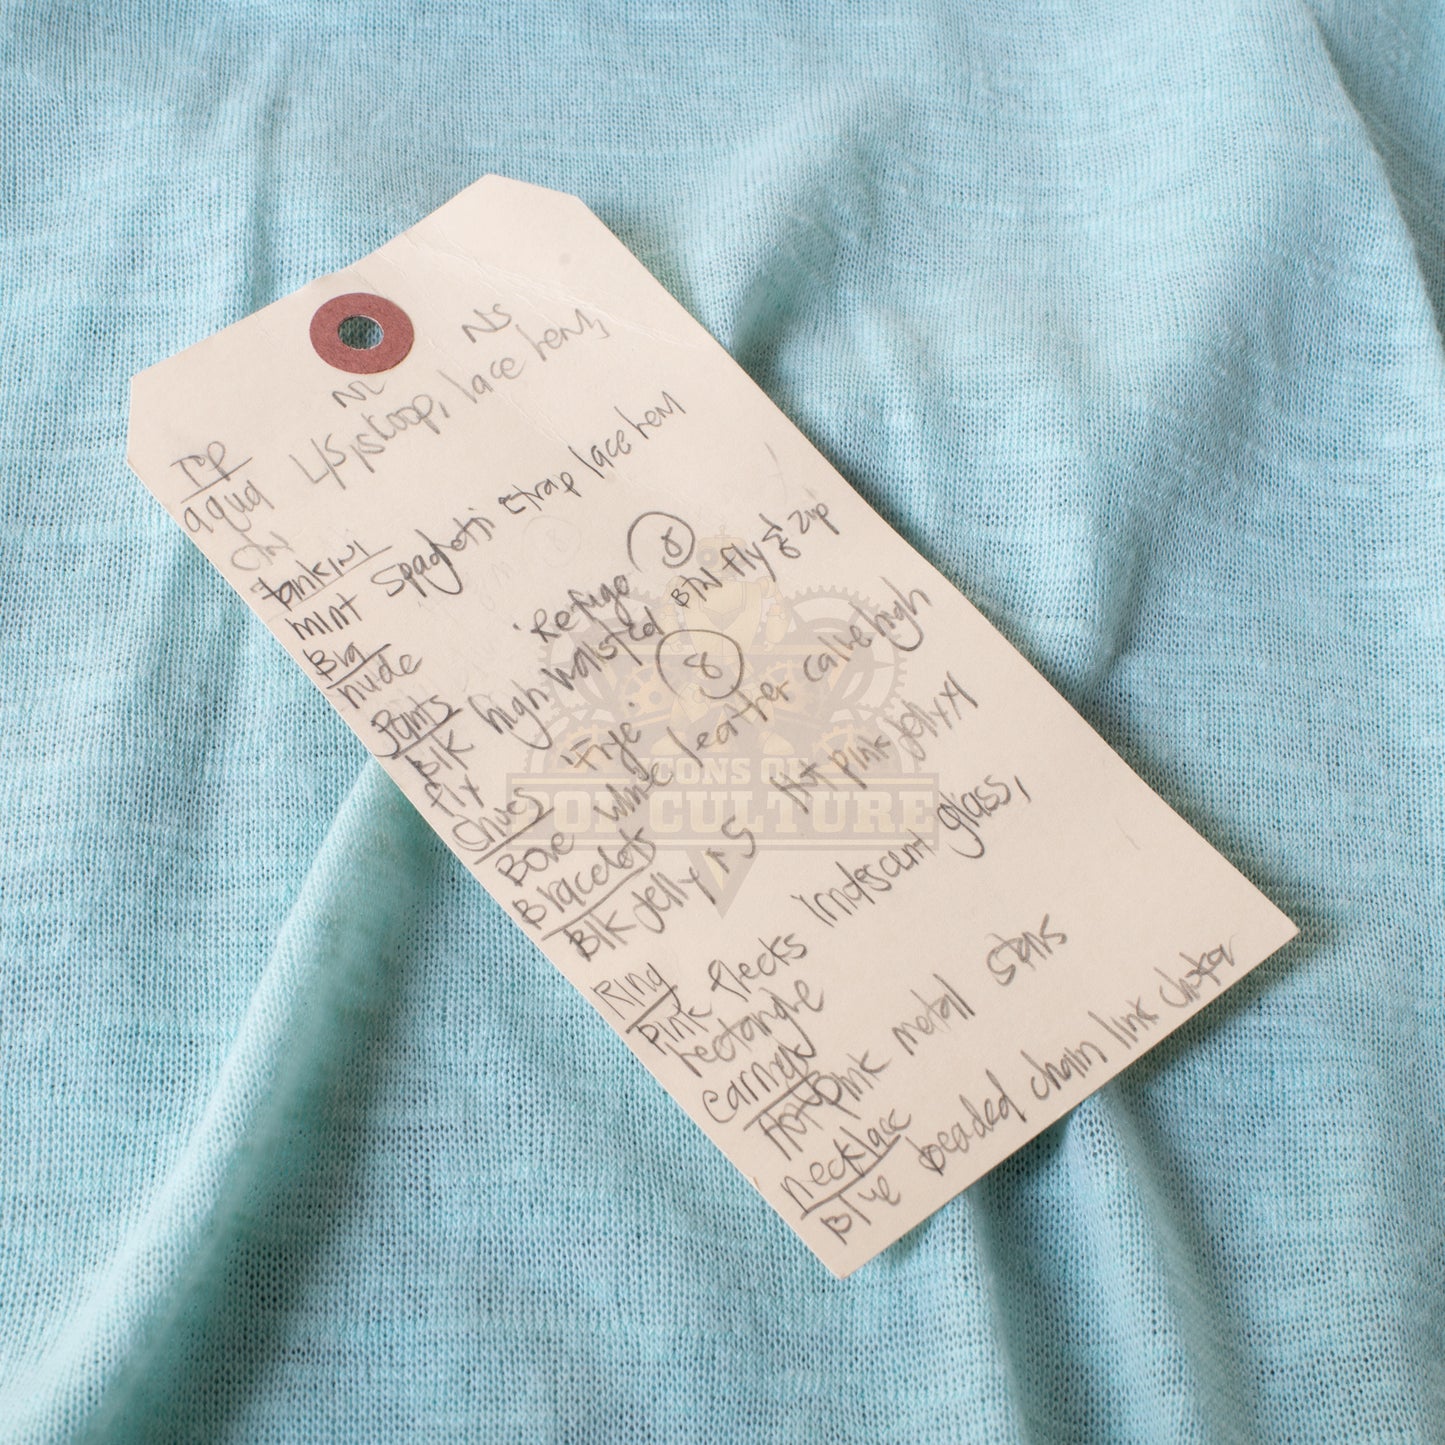 NL NS
Top
aqua L/S, scoop, lace hem,
tankini
mint spaghetti strap lace hem
Bra
nude
Pants "Refuge 8
Blk high waisted BTN fly & zip
Shoes "Frye" 8
Bone white leather calve high
Bracelets
Blk Jelly x5 Hot pink Jelly x4
Ring
pink flecks irridscunt glass,
rectangle
earrings
Hot pink metal stars
necklace
Blue beaded chain link choker
ICONS OF
POP CULTURE